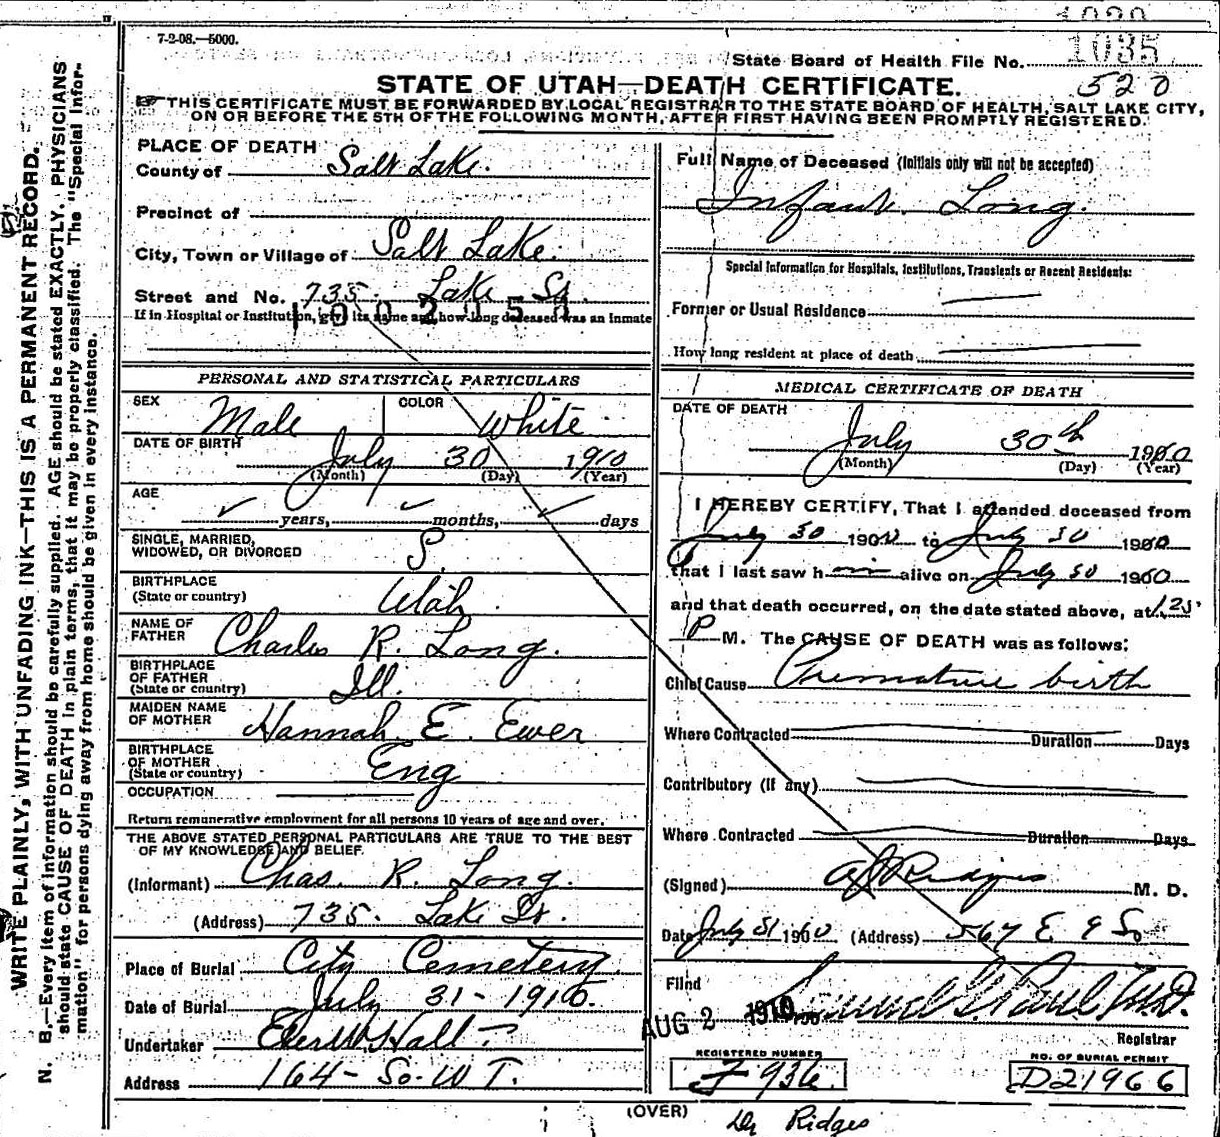 7-2-08.—5000.
1035
State Board of Health File No.
520
STATE OF UTAH—DEATH CERTIFICATE.
THIS CERTIFICATE MUST BE FORWARDED BY LOCAL REGISTRAR TO THE STATE BOARD OF HEALTH, SALT LAKE CITY,
ON OR BEFORE THE 5TH OF THE FOLLOWING MONTH, AFTER FIRST HAVING BEEN PROMPTLY REGISTERED.
WRITE PLAINLY, WITH UNFADING INK—THIS IS A PERMANENT RECORD.
N. B.—Every item of information should be carefully supplied. AGE should be stated EXACTLY. PHYSICIANS
should state CAUSE OF DEATH in plain terms, that it may be properly classified. The "Special Infor-
mation" for persons dying away from home should be given in every instance.
PLACE OF DEATH
County of Salt Lake.
Precinct of
City, Town or Village of Salt Lake.
Street and No. 735. Lake St.
If in Hospital or Institution, give its name and how long deceased was an inmate
PERSONAL AND STATISTICAL PARTICULARS
SEX Male COLOR White
DATE OF BIRTH July 30 1910
(Month) (Day) (Year)
AGE
years, months, days
SINGLE, MARRIED,
WIDOWED, OR DIVORCED S.
BIRTHPLACE
(State or country) Utah
NAME OF
FATHER Charles R. Long.
BIRTHPLACE
OF FATHER
(State or country) Ill.
MAIDEN NAME
OF MOTHER Hannah E. Ewer
BIRTHPLACE
OF MOTHER
(State or country) Eng
OCCUPATION
Return remunerative employment for all persons 10 years of age and over.
THE ABOVE STATED PERSONAL PARTICULARS ARE TRUE TO THE BEST
OF MY KNOWLEDGE AND BELIEF.
(Informant) Chas. R. Long.
(Address) 735. Lake St.
Place of Burial City Cemetery.
Date of Burial July 31-1910.
Undertaker Eber W Hall
Address 164- So. W T.
Full Name of Deceased (Initials only will not be accepted)
Infant. Long.
Special Information for Hospitals, Institutions, Transients or Recent Residents:
Former or Usual Residence
How long resident at place of death
MEDICAL CERTIFICATE OF DEATH
DATE OF DEATH
July 30th 1910
(Month) (Day) (Year)
I HEREBY CERTIFY, That I attended deceased from
July 30 1910 to July 30 1910
that I last saw h im alive on July 30 1910
and that death occurred, on the date stated above, at 1.25
P M. The CAUSE OF DEATH was as follows:
Chief Cause Premature birth
Where Contracted Duration Days
Contributory (if any)
Where Contracted Duration Days
(Signed) A J Ridges M. D.
Date July 31 1910 (Address) 567 E 9 So
Filed
AUG 2 1910 Samuel G. Paul M.D.
Registrar
REGISTERED NUMBER
F 936
NO. OF BURIAL PERMIT
D21966
(OVER)
Dr Ridges